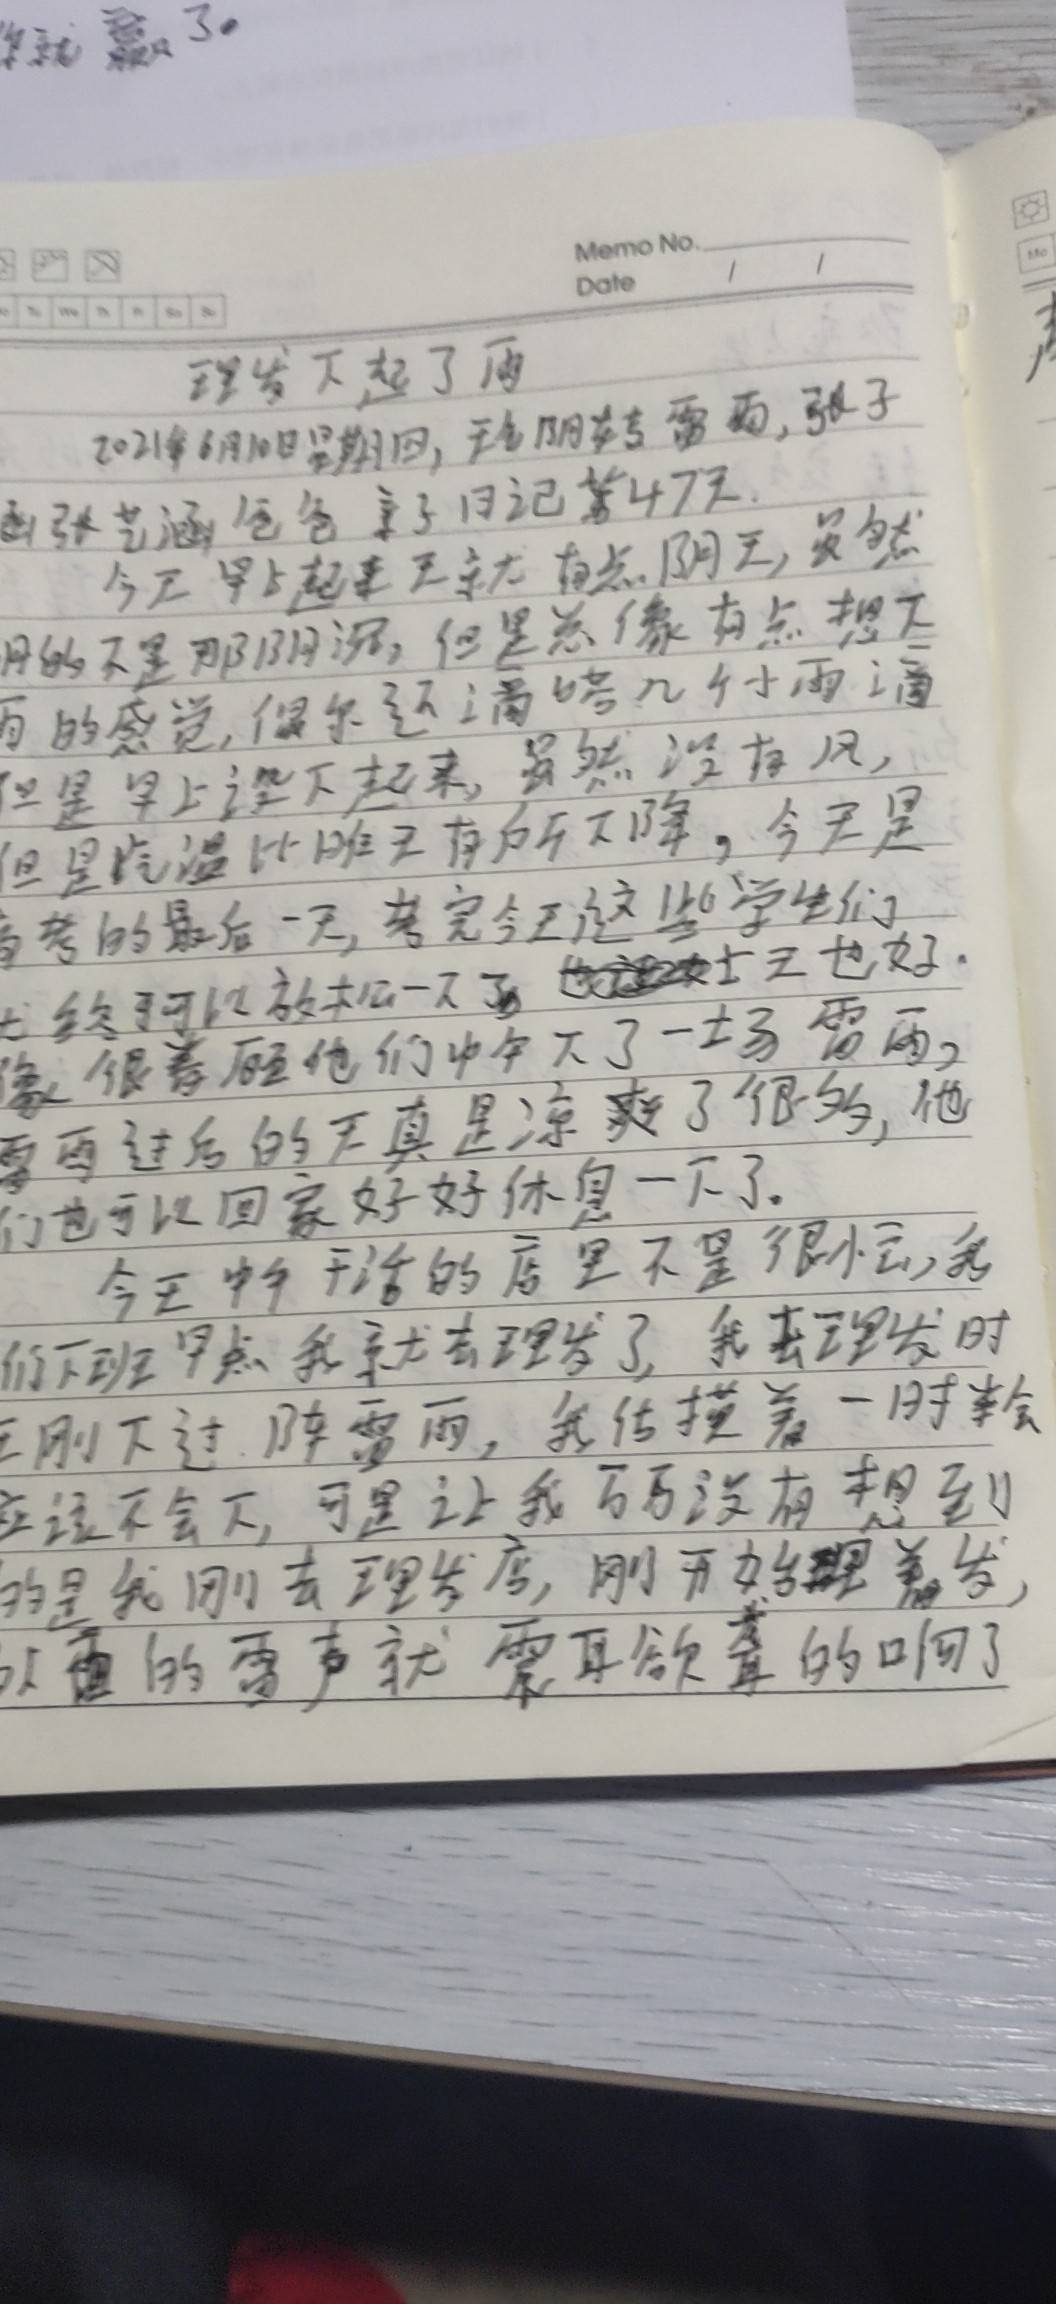 你就赢了。
Memo No.
Date / /
Tu We Th Fr Sa Su
Mo
理发下起了雨
2021年6月10日星期四,天气阴转雷雨,张子
涵张艺涵爸爸亲子日记第47天.
今天早上起来天就有点阴天,虽然
阴的不是那阴沉,但是总像有点想下
雨的感觉,偶尔还滴嗒几个小雨滴
但是早上没下起来,虽然没有风,
但是气温比昨天有所下降。今天是
高考的最后一天,考完今天这些学生们
也终于可以放松一下了 上天也好.
像很眷顾他们中午下了一场雷雨,
雷雨过后的天真是凉爽了很多,他
们也可以回家好好休息一下了。
今天中午干活的店里不是很忙,我
们下班早点我就去理发了,我去理发时
天刚下过阵雷雨,我估摸着一时半会
应该不会下,可是让我万万没有想到
的是我刚去理发店,刚开始理着发,
的雷声就震耳欲聋的响了